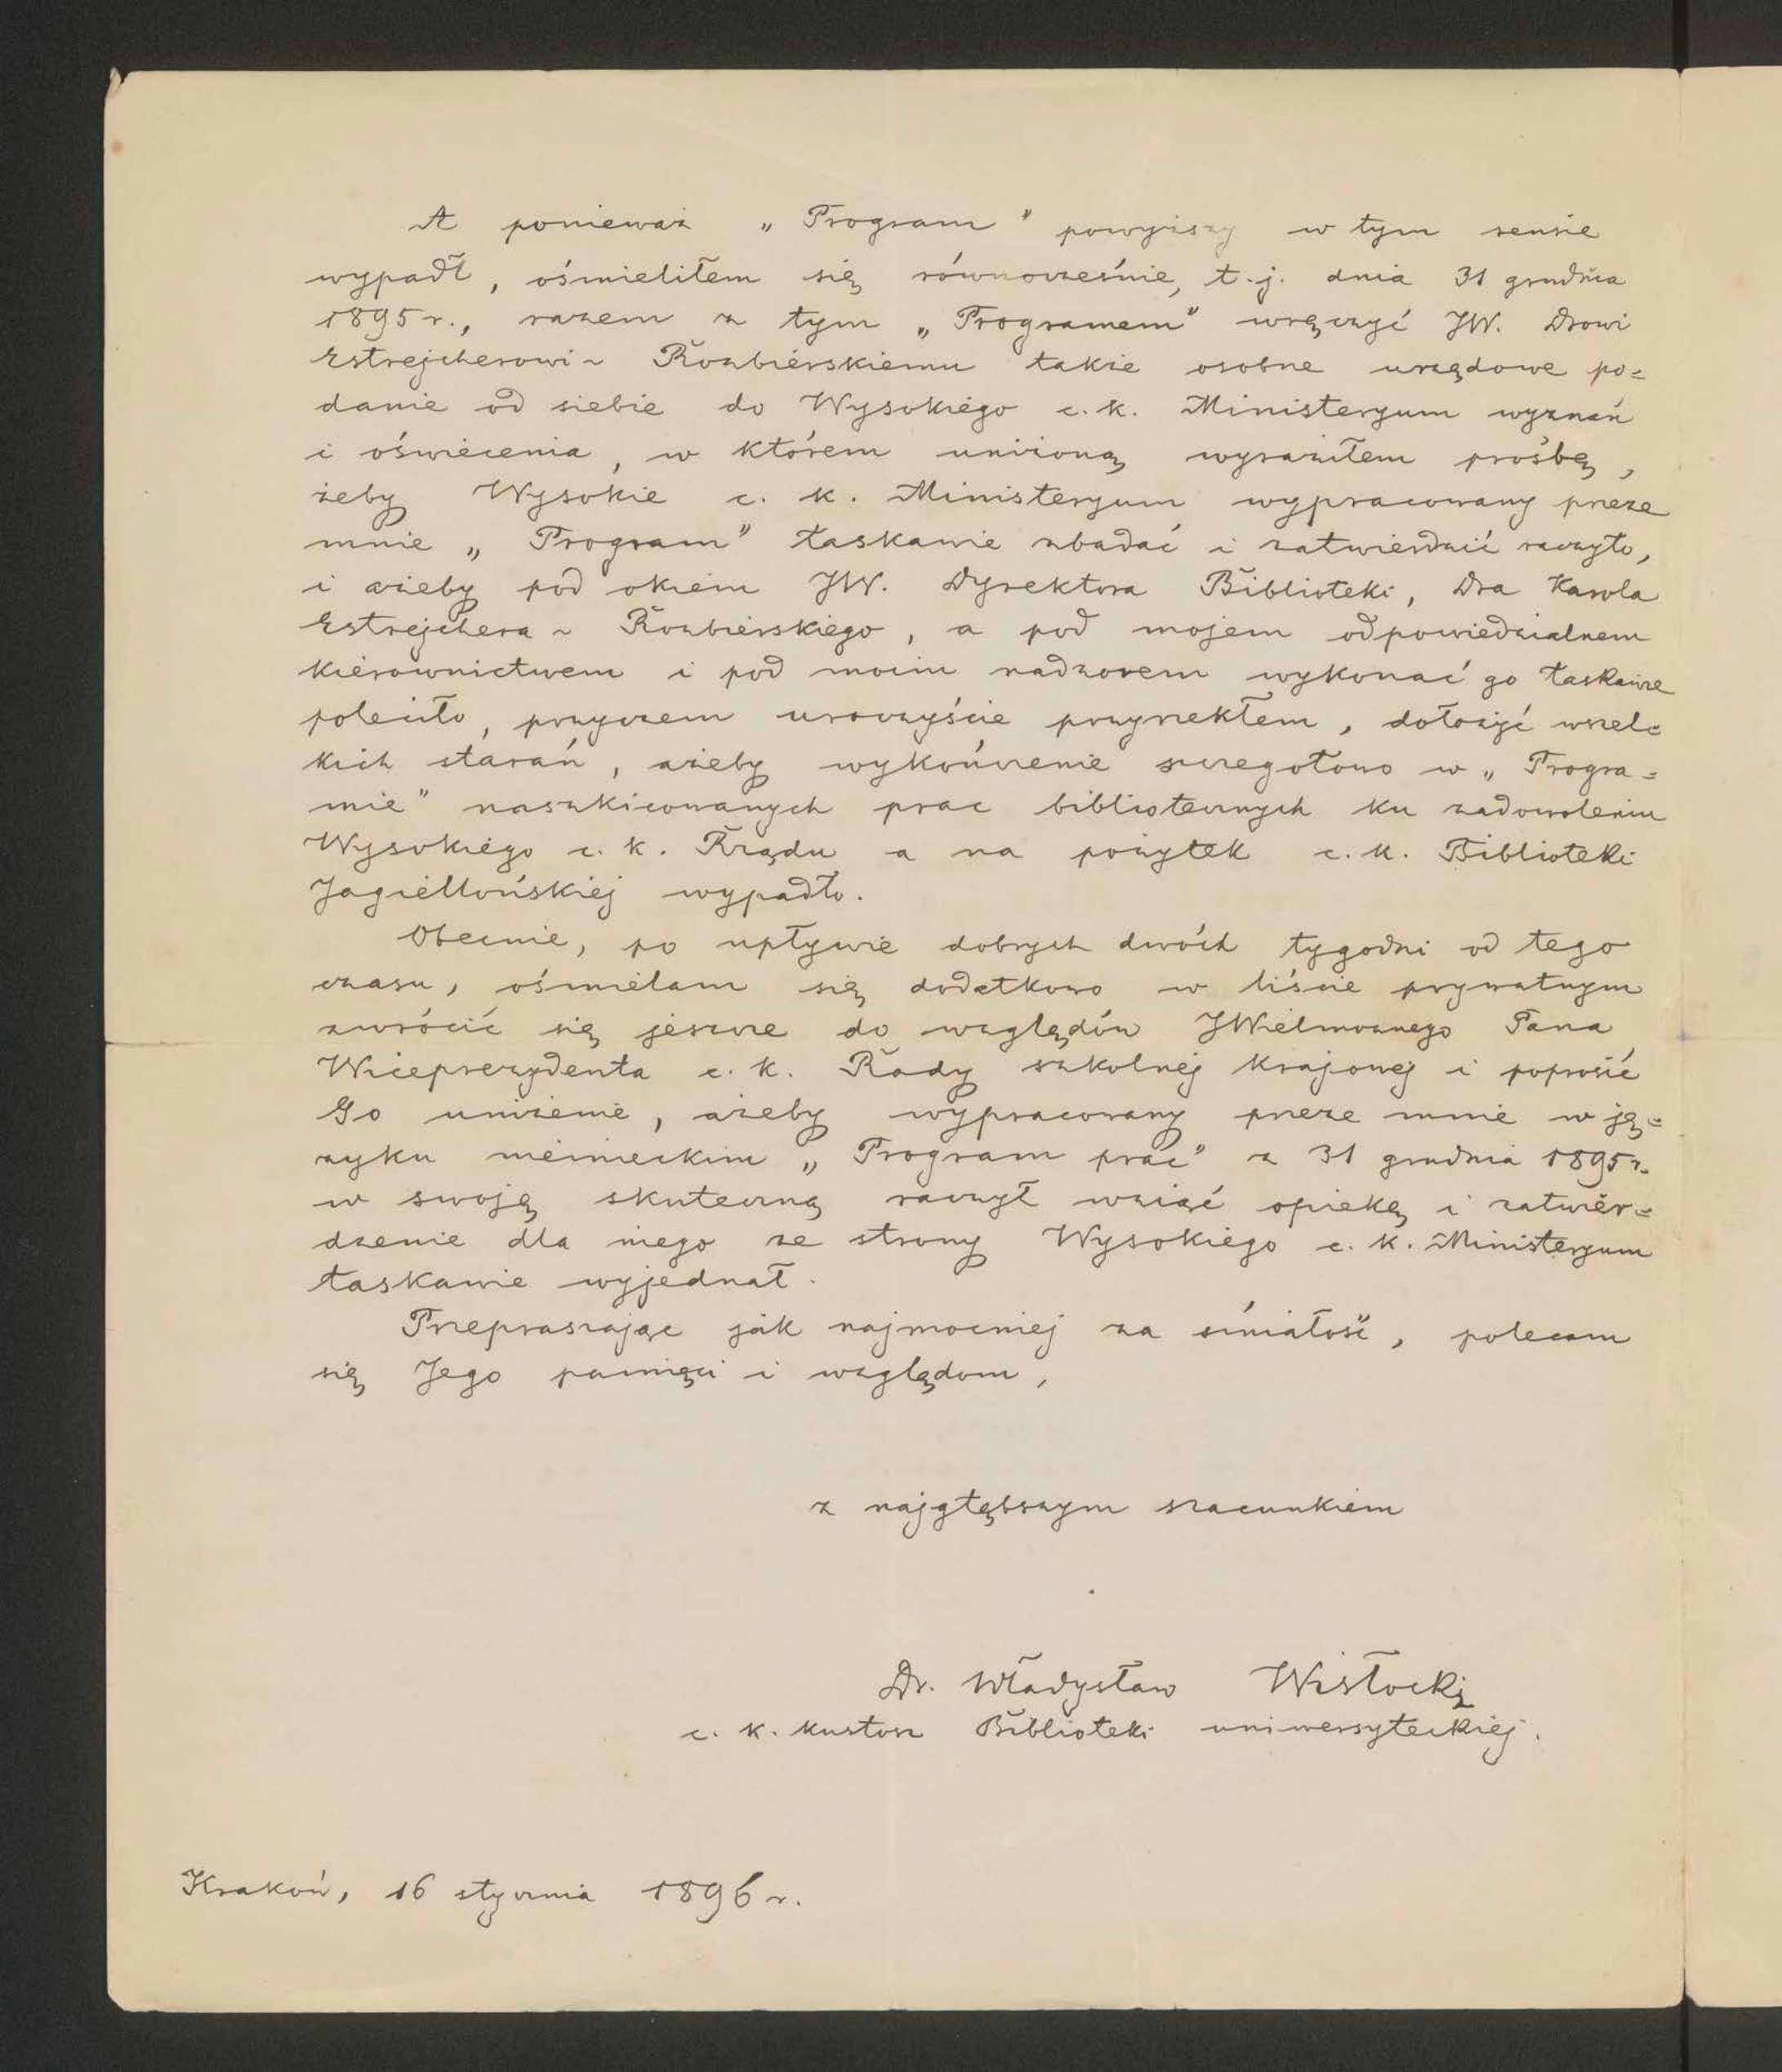 A ponieważ „Program" powyższy w tym sensie
wypadł, ośmieliłem się równocześnie, t.j. dnia 31 grudnia
1895 r., razem z tym „Programem" wręczyć JW. Drowi
Estrejcherowi-Rozbiérskiemu także osobne urzędowe po=
danie od siebie do Wysokiégo c. k. Ministeryum wyznań
i oświécenia, w którem uniżoną wyraziłem prośbę,
żeby Wysokie c. k. Ministeryum wypracowany przeze
mnie „Program" łaskawie zbadać i zatwierdzić raczyło,
i ażeby pod okiem JW. Dyrektora Biblioteki, Dra Karola
Estrejchera-Rozbiérskiégo, a pod mojem odpowiedzialnem
kiérownictwem i pod moim nadzorem wykonać go łaskawie
poleciło, przyczem uroczyście przyrzekłem, dołożyć wszel=
kich starań, ażeby wykończenie szczegółowo w „Progra=
mie" naszkicowanych prac bibliotecznych ku zadowoleniu
Wysokiégo c. k. Rządu a na pożytek c. k. Biblioteki
Jagiéllońskiéj wypadło.
Obecnie, po upływie dobrych dwóch tygodni od tego
czasu, ośmiélam się dodatkowo w liście prywatnym
zwrócić się jeszcze do względów JWielmożnego Pana
Wiceprezydenta c. k. Rady szkolnéj krajowéj i poprosić
Go uniżenie, ażeby wypracowany przeze mnie w ję=
zyku niémieckim „Program prac" z 31 grudnia 1895 r.
w swoję skuteczną raczył wziąć opiekę i zatwiér=
dzenie dla niego ze strony Wysokiégo c. k. Ministeryum
łaskawie wyjednał.
Przepraszając jak najmocniej za śmiałość, polecam
się Jego pamięci i względom,
z najgłębszym szacunkiem
Dr. Władysław Wisłocki
c. k. kustosz Biblioteki uniwersyteckiéj.
Kraków, 16 stycznia 1896 r.